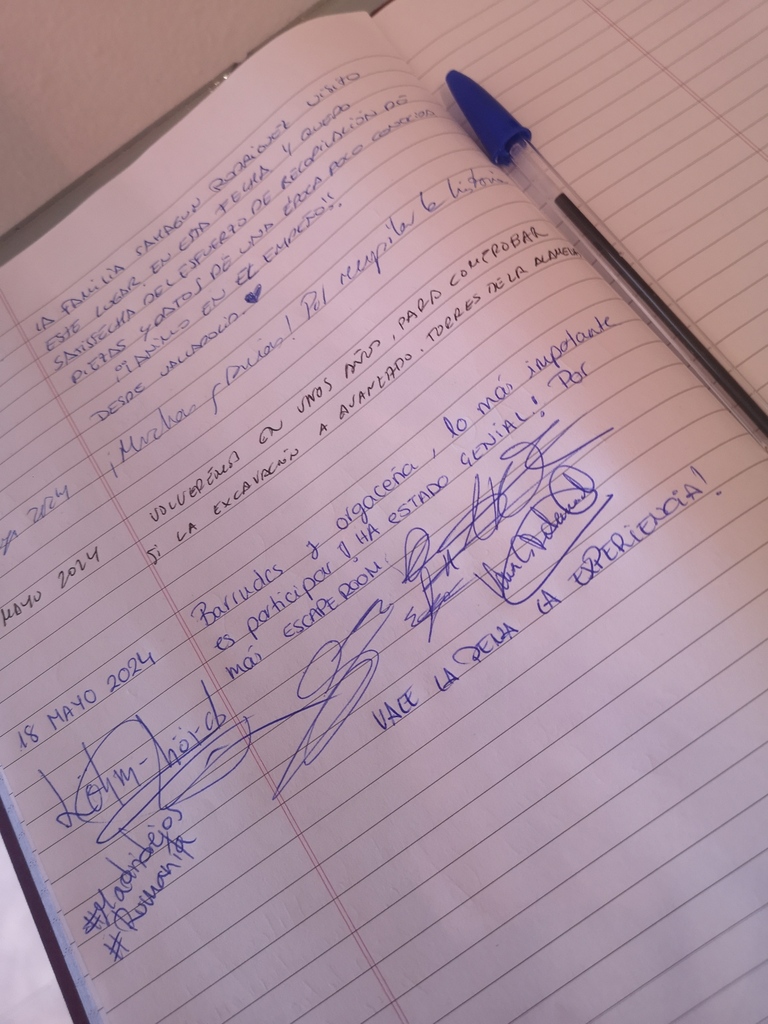 LA FAMILIA SAHAGUN RODRIGUEZ VISITO
ESTE LUGAR EN ESTA FECHA Y QUEDO
SATISFECHA DEL ESFUERZO DE RECOPILACIÓN DE
PIEZAS Y DATOS DE UNA ÉPOCA POCO CONOCIDA
¡¡ANIMO EN EL EMPEÑO!!
DESDE VALLADOLID.
¡Muchas gracias! Por recopilar la historia
2024
VOLVEREMOS EN UNOS AÑOS, PARA COMPROBAR
SI LA EXCAVACIÓN A AVANZADO. TORRES DE LA ALAMEDA
MAYO 2024
18 MAYO 2024
Barrudos y orgaceña, lo más importante
es participar! HA ESTADO GENIAL! Por
más ESCAPEROOM.
VALE LA PENA LA EXPERIENCIA!
#Madridejos
#Rumanía